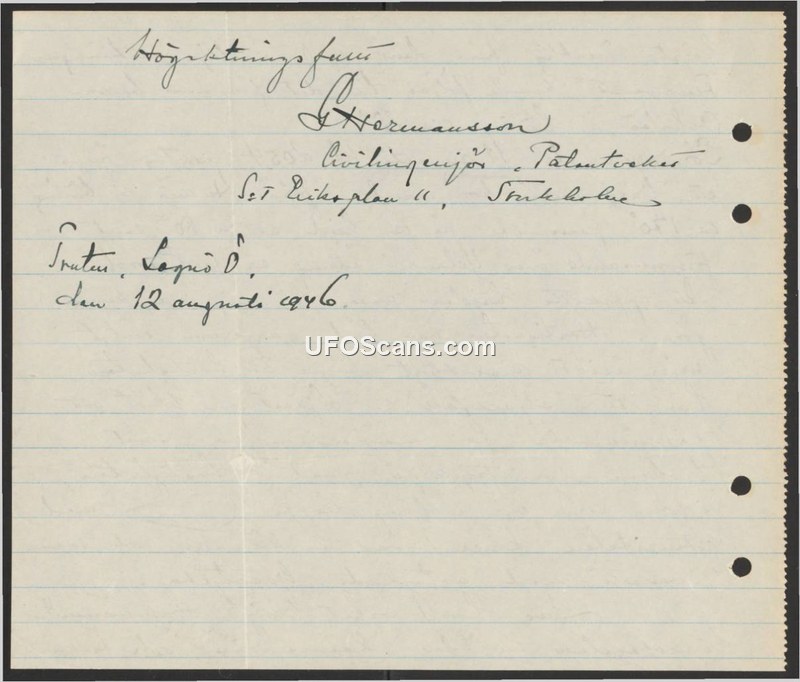 Högaktningsfullt
G Hermansson
Civilingenjör, Patent
S:t Eriksplan 11, Stockholm
Ö.
den 12 augusti 1946.
UFOScans.com